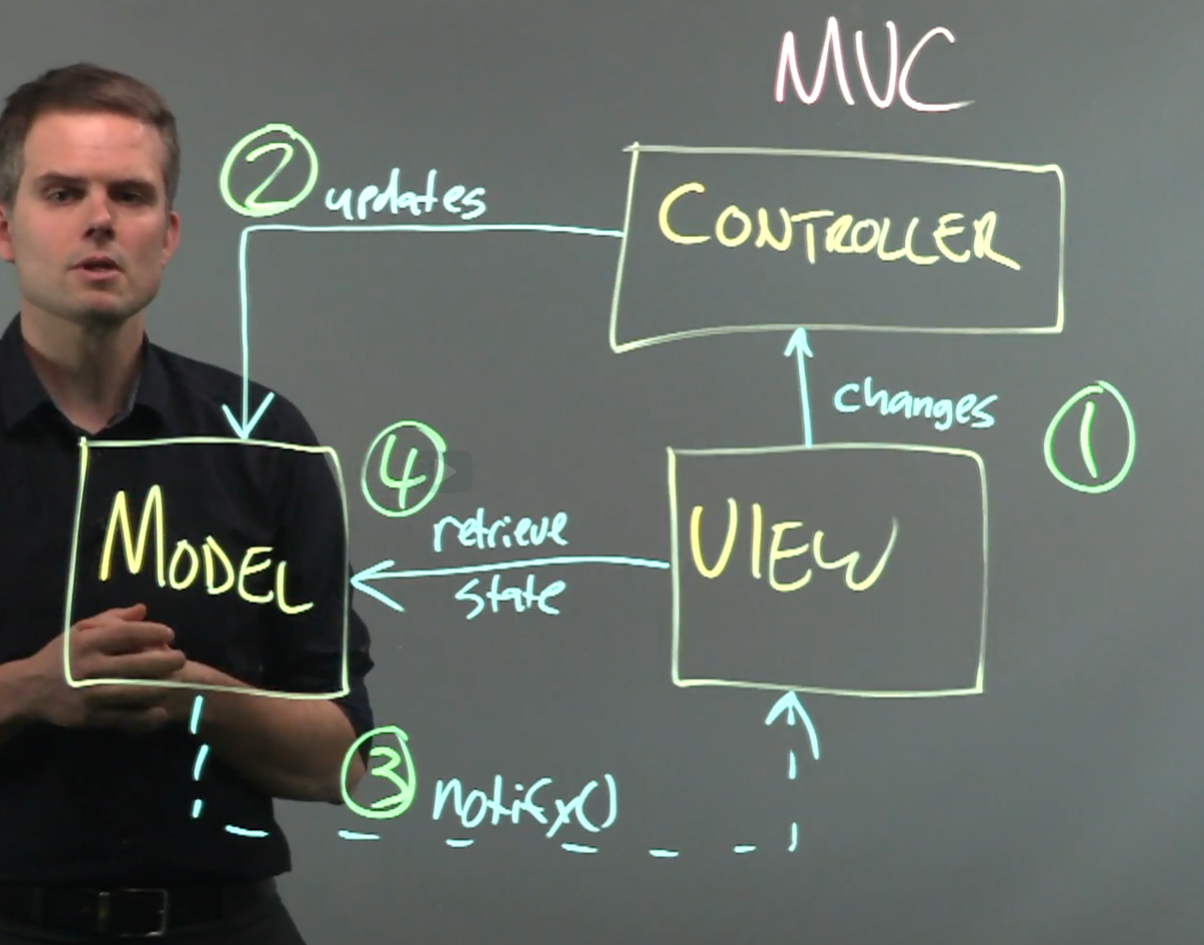 MVC
2 updates
CONTROLLER
changes 1
4
retrieve
state
MODEL
VIEW
3 notify()